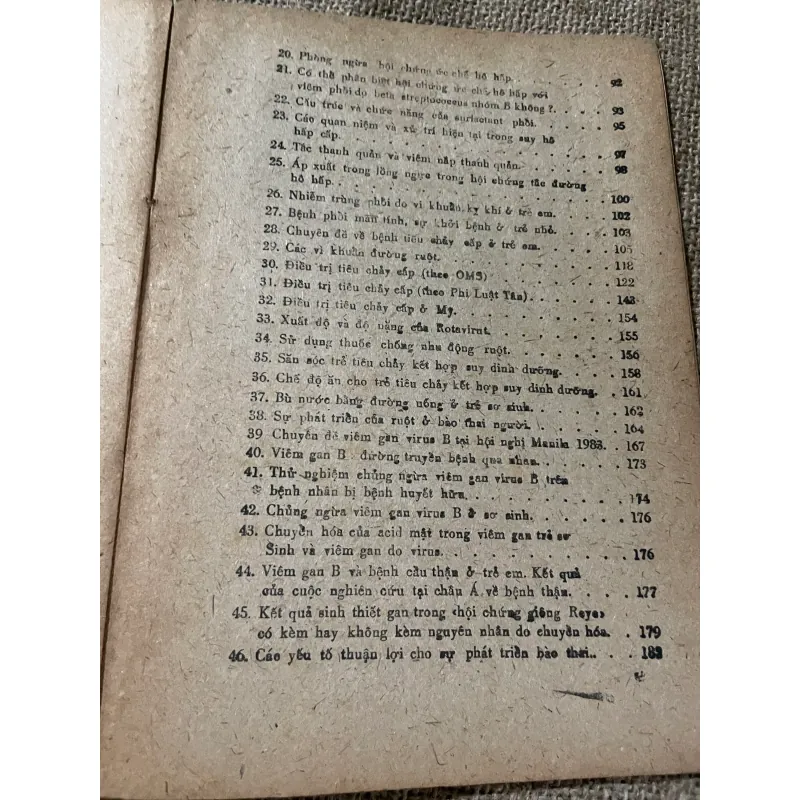 20. Phòng ngừa hội chứng ức chế hô hấp. . . . . . . 92
21. Có thể phân biệt hội chứng ức chế hô hấp với
viêm phổi do beta streptococcus nhóm B không ?. . . . 93
22. Cấu trúc và chức năng của surfactant phổi. . . . . 95
23. Các quan niệm và xử trí hiện tại trong suy hô
hấp cấp. . . . . . . . . . . 97
24. Tắc thanh quản và viêm nắp thanh quản. . . . . 98
25. Áp xuất trong lồng ngực trong hội chứng tắc đường
hô hấp. . . . . . . . . . . 100
26. Nhiễm trùng phổi do vi khuẩn kỵ khí ở trẻ em. . . . 102
27. Bệnh phổi mãn tính, sự khởi bệnh ở trẻ nhỏ. . . . 103
28. Chuyên đề về bệnh tiêu chảy cấp ở trẻ em. . . . . 105
29. Các vi khuẩn đường ruột. . . . . . . . . 118
30. Điều trị tiêu chảy cấp (theo OMS) . . . . . . 122
31. Điều trị tiêu chảy cấp (theo Phi Luật Tân) . . . . . 143
32. Điều trị tiêu chảy cấp ở Mỹ. . . . . . . . 154
33. Xuất độ và độ nặng của Rotavirut. . . . . . . 155
34. Sử dụng thuốc chống nhu động ruột. . . . . . 156
35. Săn sóc trẻ tiêu chảy kết hợp suy dinh dưỡng. . . . 158
36. Chế độ ăn cho trẻ tiêu chảy kết hợp suy dinh dưỡng. . 161
37. Bù nước bằng đường uống ở trẻ sơ sinh. . . . . 162
38. Sự phát triển của ruột ở bào thai người. . . . . 164
39 Chuyên đề viêm gan virus B tại hội nghị Manila 1983. . 167
40. Viêm gan B : đường truyền bệnh qua nhau. . . . . 173
41. Thử nghiệm chủng ngừa viêm gan virus B trên
bệnh nhân bị bệnh huyết hữu. . . . . . . . 174
42. Chủng ngừa viêm gan virus B ở sơ sinh. . . . . 176
43. Chuyển hóa của acid mật trong viêm gan trẻ sơ
Sinh và viêm gan do virus. . . . . . . . . 176
44. Viêm gan B và bệnh cầu thận ở trẻ em. Kết quả
của cuộc nghiên cứu tại châu Á về bệnh thận. . . . 177
45. Kết quả sinh thiết gan trong «hội chứng giống Reye»
có kèm hay không kèm nguyên nhân do chuyển hóa. . 179
46. Các yếu tố thuận lợi cho sự phát triển bào thai. . . 183